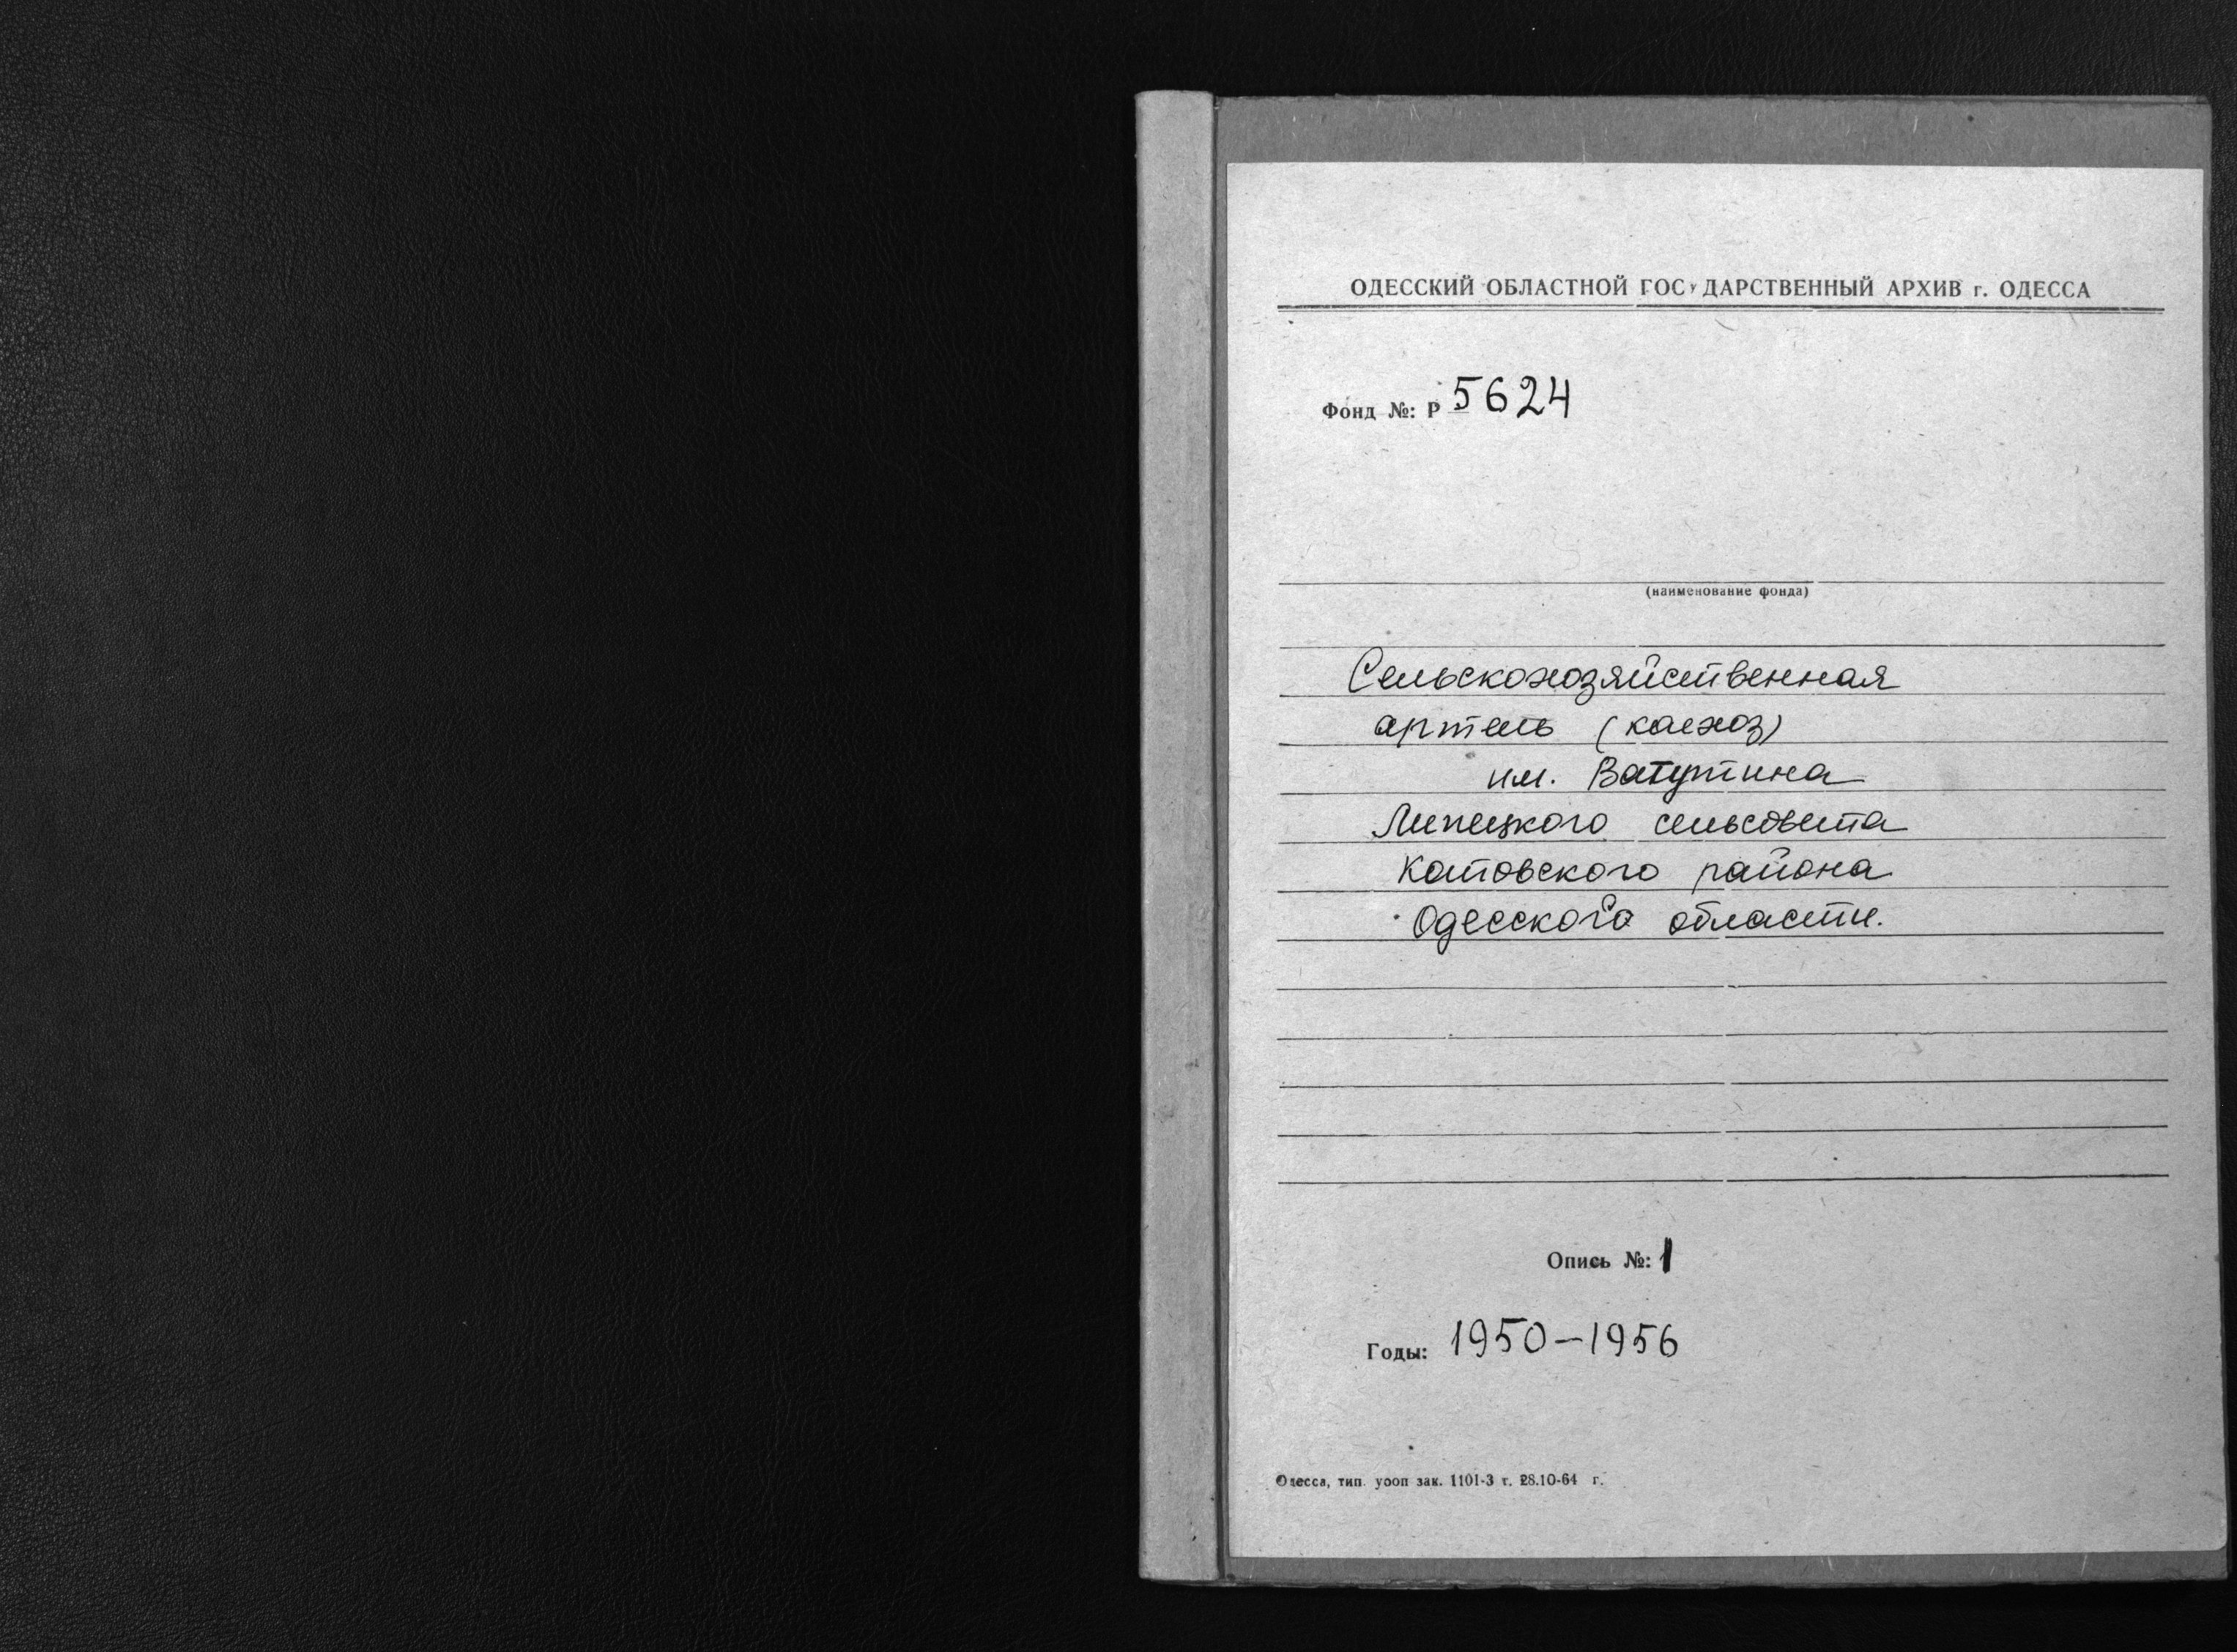 ОДЕССКИЙ ОБЛАСТНОЙ ГОСУДАРСТВЕННЫЙ АРХИВ г. ОДЕССА
Фонд №: Р 5624
(наименование фонда)
Сельскохозяйственная
артель (колхоз)
им. Ватутина
Липецкого сельсовета
Котовского района
Одесского области.
Опись №: 1
Годы: 1950–1956
Одесса, тип. уооп зак. 1101-3 т. 28.10-64 г.